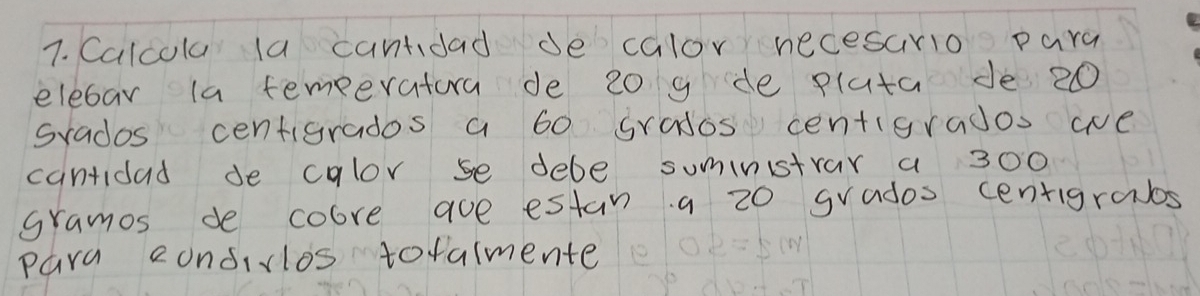 1. Calcula la cantidad de calor necesario para
elebar la temperatura de 20 g de plata de 20
grados centigrados a 60 grados centigrados que
cantidad de calor se debe suministrar a 300
gramos de cobre que estan a 20 grados centigrados
para fundirlos totalmente